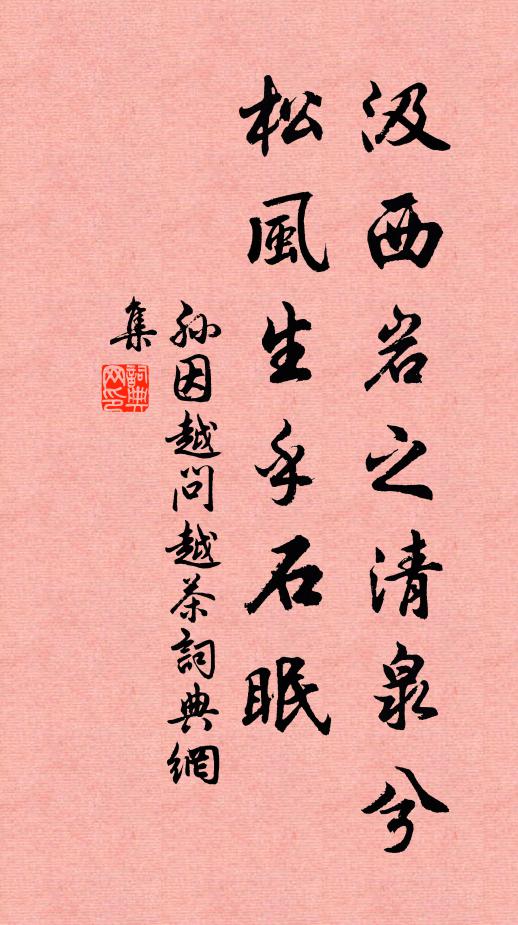 汲西岩之清泉兮
松風生乎石眠
孙因越問越茶詞典網
集
詞典
网印